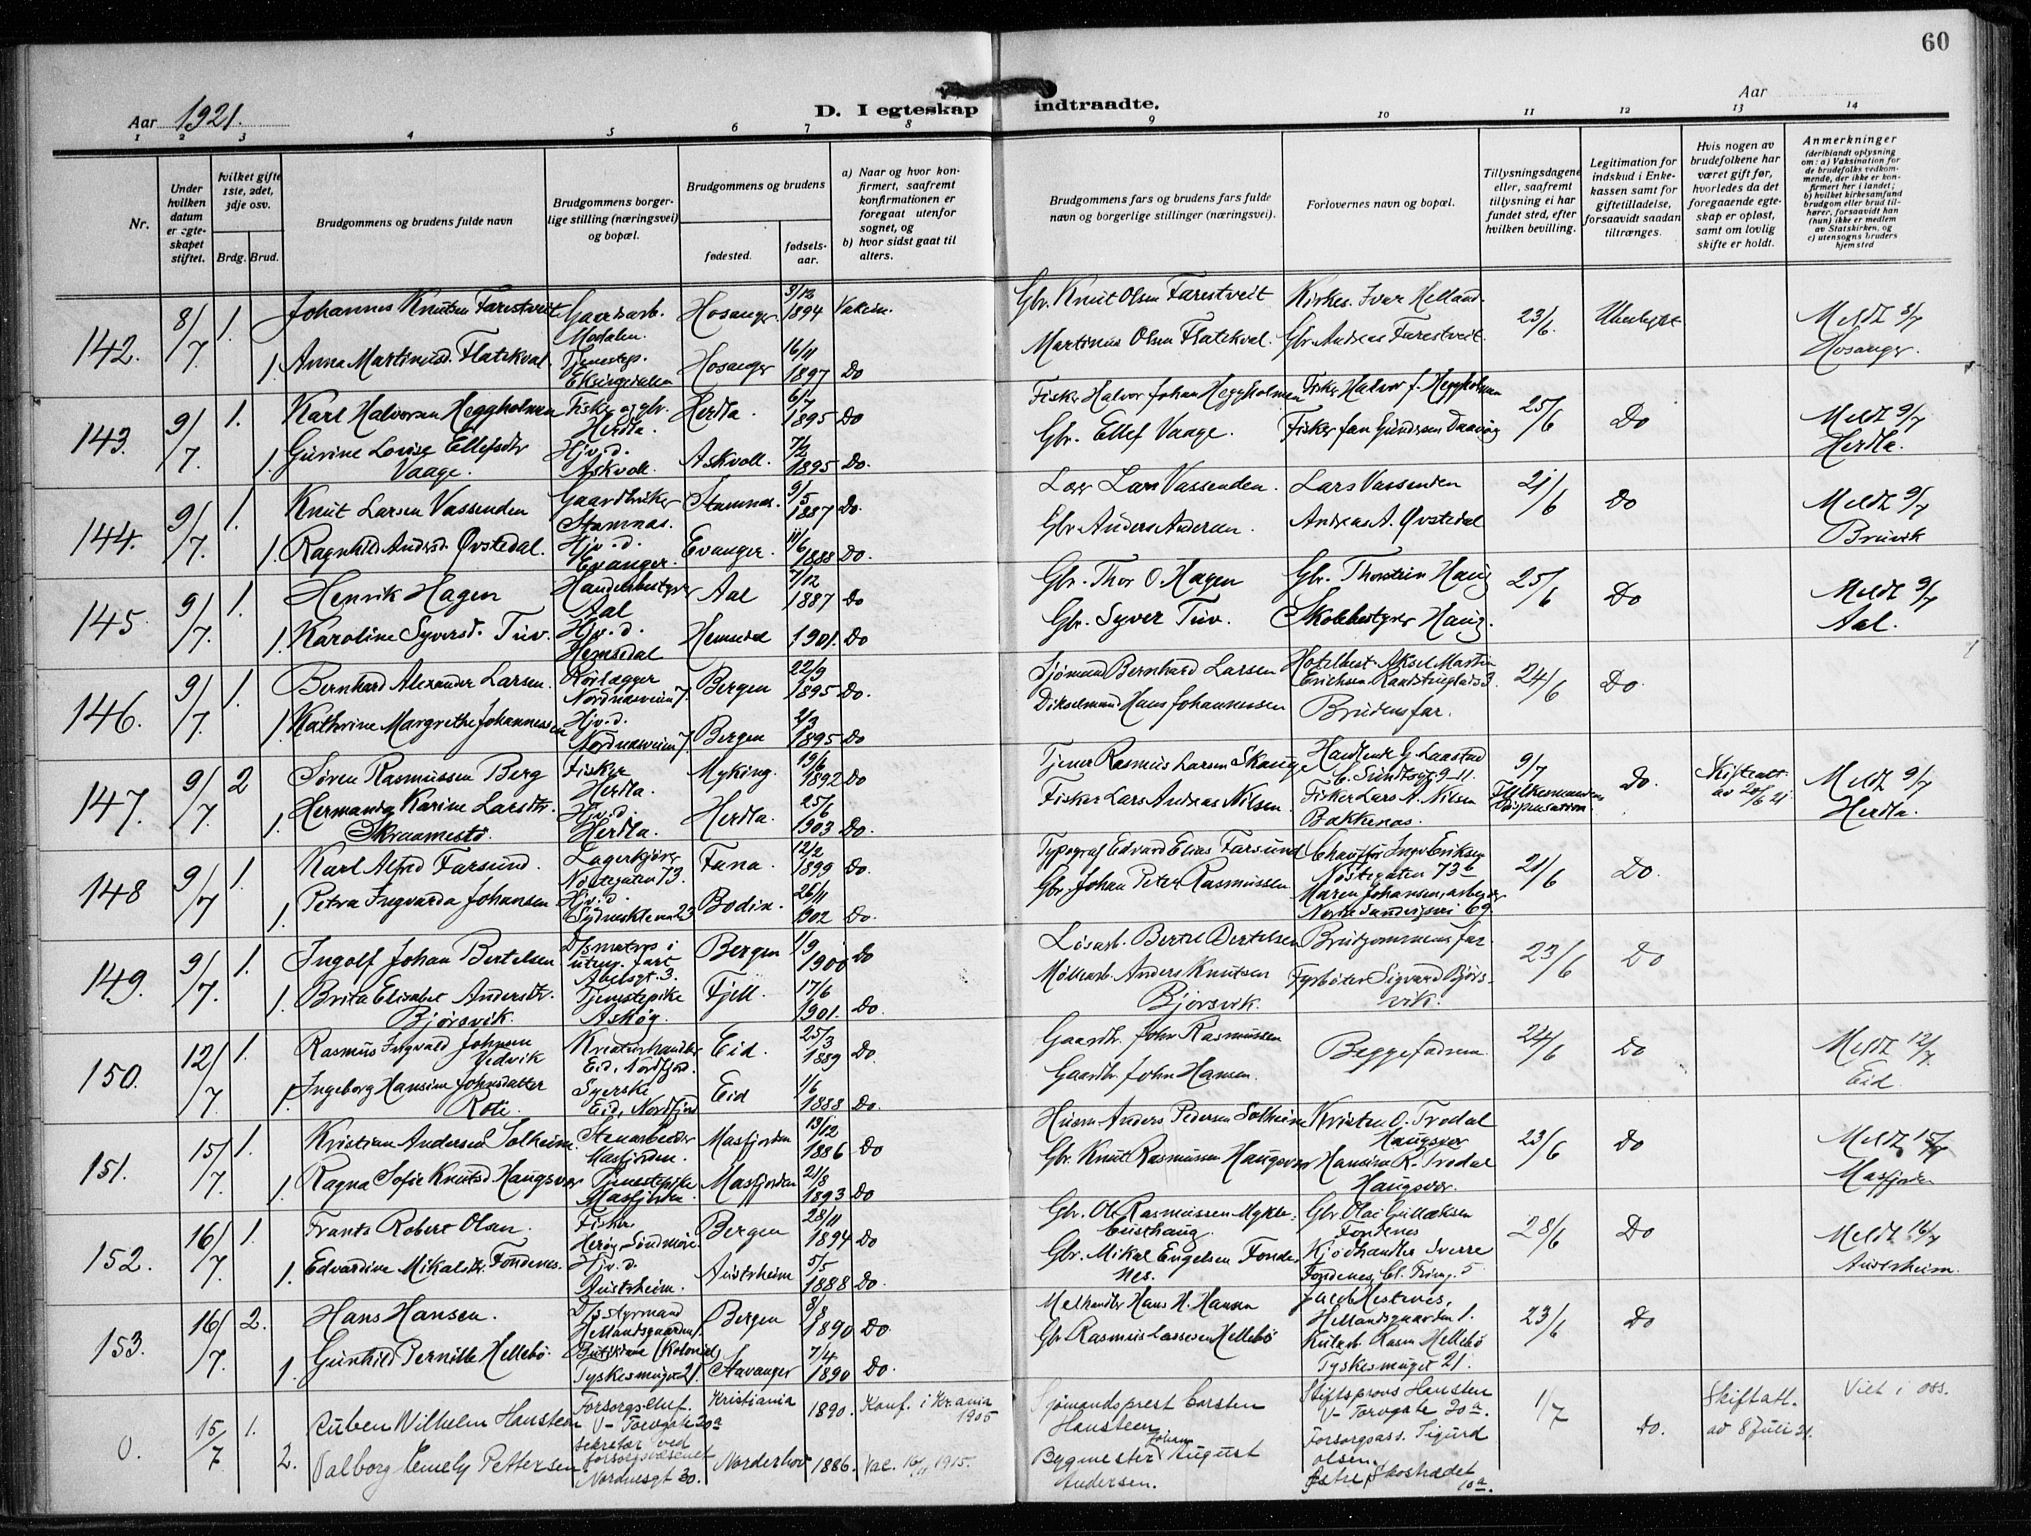 60
Aar 1921.
D. I egteskap indtraadte.
Aar
1 2 3 4 5 6 7 8 9 10 11 12 13 14
Nr.
Under hvilken datum er egteskapet stiftet.
hvilket gifte 1ste, 2det, 3dje osv.
Brdg. Brud.
Brudgommens og brudens fulde navn
Brudgommens borgerlige stilling (næringsvei) og bopæl.
Brudgommens og brudens
fødested.
fødselsaar.
a) Naar og hvor konfirmert, saafremt konfirmationen er foregaat utenfor sognet, og
b) hvor sidst gaat til alters.
Brudgommens fars og brudens fars fulde navn og borgerlige stillinger (næringsvei).
Forlovernes navn og bopæl.
Tillysningsdagene eller, saafremt tillysning ei har fundet sted, efter hvilken bevilling.
Legitimation for indskud i Enkekassen samt for giftetilladelse, forsaavidt saadan tiltrænges.
Hvis nogen av brudefolkene har været gift før, hvorledes da det foregaaende egteskap er opløst, samt om lovlig skifte er holdt.
Anmerkninger (deriblandt oplysning om: a) Vaksination for de brudefolks vedkommende, der ikke er konfirmert her i landet; b) hvilket kirkesamfund brudgom eller brud tilhører, forsaavidt han (hun) ikke er medlem av Statskirken, og c) utensogns bruders hjemsted
142. 8/7 1. Johannes Knutsen Farestveit Gaardsarb. Modalen Hosanger 3/12 1894 Gbr. Knut Olsen Farestveit Kirkes. Ivar Helland. 23/6. Meldt 8/7 Hosanger.
1. Anna Martinusd. Flatekval. Tjenestep. Eksingedalen Hosanger 16/11 1897 Do Martinus Olsen Flatekval. Gbr. Andreas Farestveit.
143. 9/7. 1. Karl Halvorsen Heggholmen Fisker og gbr. Herdla. Herdla. 6/7 1895 Do Fisker Halvor Johan Heggholmen Fisker Halvor J. Heggholmen 25/6 Do Meldt 9/7 Herdla.
1. Gurine Lovise Ellefsdtr Vaage. Hjv. d. Askvoll. Askvoll. 7/2 1895 Do. Gbr. Ellef Vaage. Fisker Jan Gundersen
144. 9/7. 1. Knut Larsen Vassenden Gaardbruker Stamnes. Stamnes. 9/5 1887 Do. Lars Vassenden. Lars Vassenden 21/6 Do Meldt 9/7 Bruvik
1. Ragnhild Andersd. Øvstedal. Hjv. d. Evanger. Evanger. 11/6 1888 Do. Gbr. Anders Andersen. Andreas A. Øvstedal
145. 9/7. 1. Henrik Hagen Handelsbestyrer Aal Aal 7/12 1887 Do Gbr. Thor O. Hagen Gbr. Thorstein Haug 25/6 Do Meldt 9/7 Aal.
1. Karoline Syversd. Tuv. Hjv. d. Hemsedal Hemsedal 1901. Do Gbr. Syver Tuv. Skolebestyrer Haug.
146. 9/7. 1. Bernhard Alexander Larsen. Rørlægger Nordnæsveien 7. Bergen 22/9 1895 Do. Sjømand Bernhard Larsen Hotelbest. Aksel Martin Erichsen 24/6 Do.
1. Kathrine Margrethe Johannessen Hjv. d. Nordnæsveien 7. Bergen 2/3 1895 Do Hans Johannessen Brudens far.
147. 9/7. 2 Søren Rasmussen Berg Fisker Herdla. Myking. 19/6 1892 Do Tjener Rasmus Larsen Skauge Handlende G. Laastad C. Sundtsgt. 9-11. 9/7 Fylkesmandens dispensation. Do. Skifteatt. av 20/6 21 Meldt 9/7 Herdla.
1. Hermanda Karine Larsdtr. Skraamestø. Hjv. d. Herdla. Herdla. 25/6 1903 Do. Fisker Lars Andreas Nilsen Fisker Lars A. Nilsen Bakkenes.
148 9/7 1. Karl Alfred Farsund. Lagerkjører Nøstegaten 73. Fana. 12/2 1899 Do. Typograf Edvard Elias Farsund Chauffør Ingv. Eriksen Nøstegaten 73a 21/6 Do.
1. Petra Ingvarda Johansen Hjv. d. 23 Bodin. 25/11 1902 Do. Gbr. Johan Peter Rasmussen Maren Johansen, arbeider Nordre Sandvigsvei 69.
149. 9/7. 1. Ingolf Johan Bertelsen D/smatros i utenr. fart Abelsgt. 3. Bergen 1/9 1900 Do Løsarb. Bertel Bertelsen Brudgommens far. 23/6 Do
1. Brita Elisabet Andersdtr. Bjørsvik. Tjenestepike Askøy. Fjell. 17/6 1901. Do. Møllearb. Anders Knutsen Bjørsvik. Fyrbøter Sigvard Bjørsvik.
150. 12/7 1. Rasmus Ingvald Johnsen Vedvik Kreaturhandler Eid, Nordfjord. Eid. 25/3 1889 Do. Gaardbr. John Rasmussen Begge fædrene 24/6 Do Meldt 12/7. Eid.
1. Ingeborg Hansine Johnsdatter Rote. Syerske Eid, Nordfjord Eid 1/6 1888 Do. Gaardbr. John Hansen.
151. 15/7 1. Kristian Andersen Solheim. Stenarbeider Masfjorden. Masfjorden 13/12 1886 Do Husm. Anders Pedersen Solheim Kristen O. Trodal Haugsvær 23/6 Do Meldt 15/7 Masfjorden
1. Ragna Sofie Knutsd Haugsvær Tjenestepike Masfjorden Masfjorden 21/8 1893 Do Gbr. Knut Rasmussen Haugsvær Hansine R. Trodal Haugsvær.
152. 16/7. 1. Frants Robert Olsen. Fisker Herøy, Søndmør. Bergen 28/11 1894 Do Gbr. Ole Rasmussen Gbr. Olai Fondenes 28/6 Do Meldt 16/7 Austrheim.
1. Edvardine Mikalsdtr. Fondenes. Hjv. d. Austrheim. Austrheim 5/5 1888 Do. Gbr. Mikal Engelsen Fondenes. Kjødhandler Sverre Fondenes, 5
153. 16/7. 2. Hans Hansen. D/S styrmand Hellandsgaarden 1. Bergen 8/8 1890 Do. Melhandler Hans H. Hansen Jacob Hestenes, Hellandsgaarden 1. 23/6 Do
1. Gunhild Pernille Hellebø. Butikdame (kolonial) Tyskesmuget 21. Stavanger 7/4 1890 Do. Gbr. Rasmus Lassesen Hellebø Rasm. Hellebø Tyskesmuget 21.
0. 15/7 1. Ruben Wilhelm Hansteen Forsorgschef. V- Torvgate 20a Kristiania 1890. Konf. i Krania 1905 Sjømandsprest Carsten Hansteen Stiftsprovst Hansteen V- Torvgate 20a. 1/7 Do. Skifteatt. av 8 Juli 21. Viet i Oss.
2. Valborg Emely Pettersen sekretær ved forsorgsvæsenet Nordnesgt 30. Norderhov 1886. Vac. 16/11 1915. Bygmester Johan August Andersen. Forsorgsass. Sigurd Olsen, Østre Skostrædet 10a.